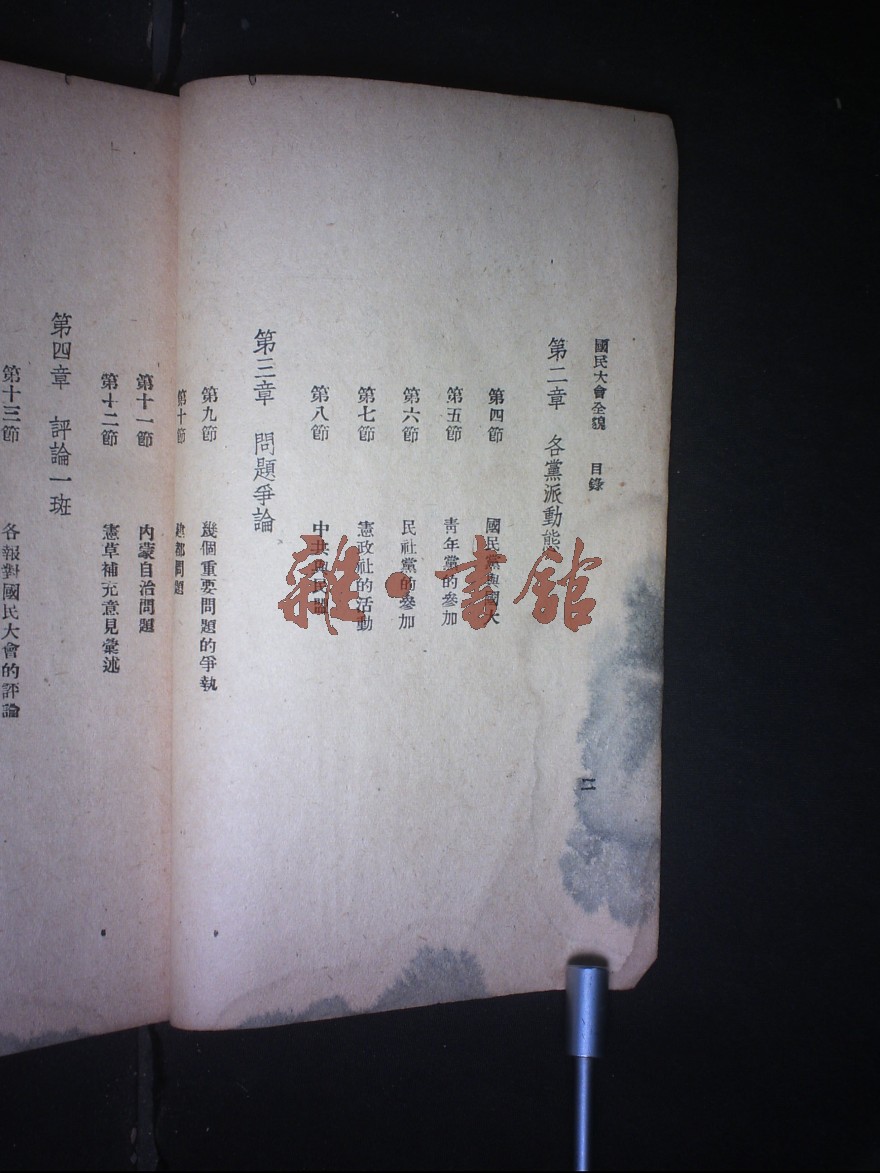 國民大會全貌 目錄
二
第二章 各黨派動態
第四節 國民黨與國大
第五節 青年黨的參加
第六節 民社黨的參加
第七節 憲政社的活動
第八節 中共與民盟
第三章 問題爭論
第九節 幾個重要問題的爭執
第十節 建都問題
第十一節 內蒙自治問題
第十二節 憲草補充意見彙述
第四章 評論一班
第十三節 各報對國民大會的評論
雜·書館